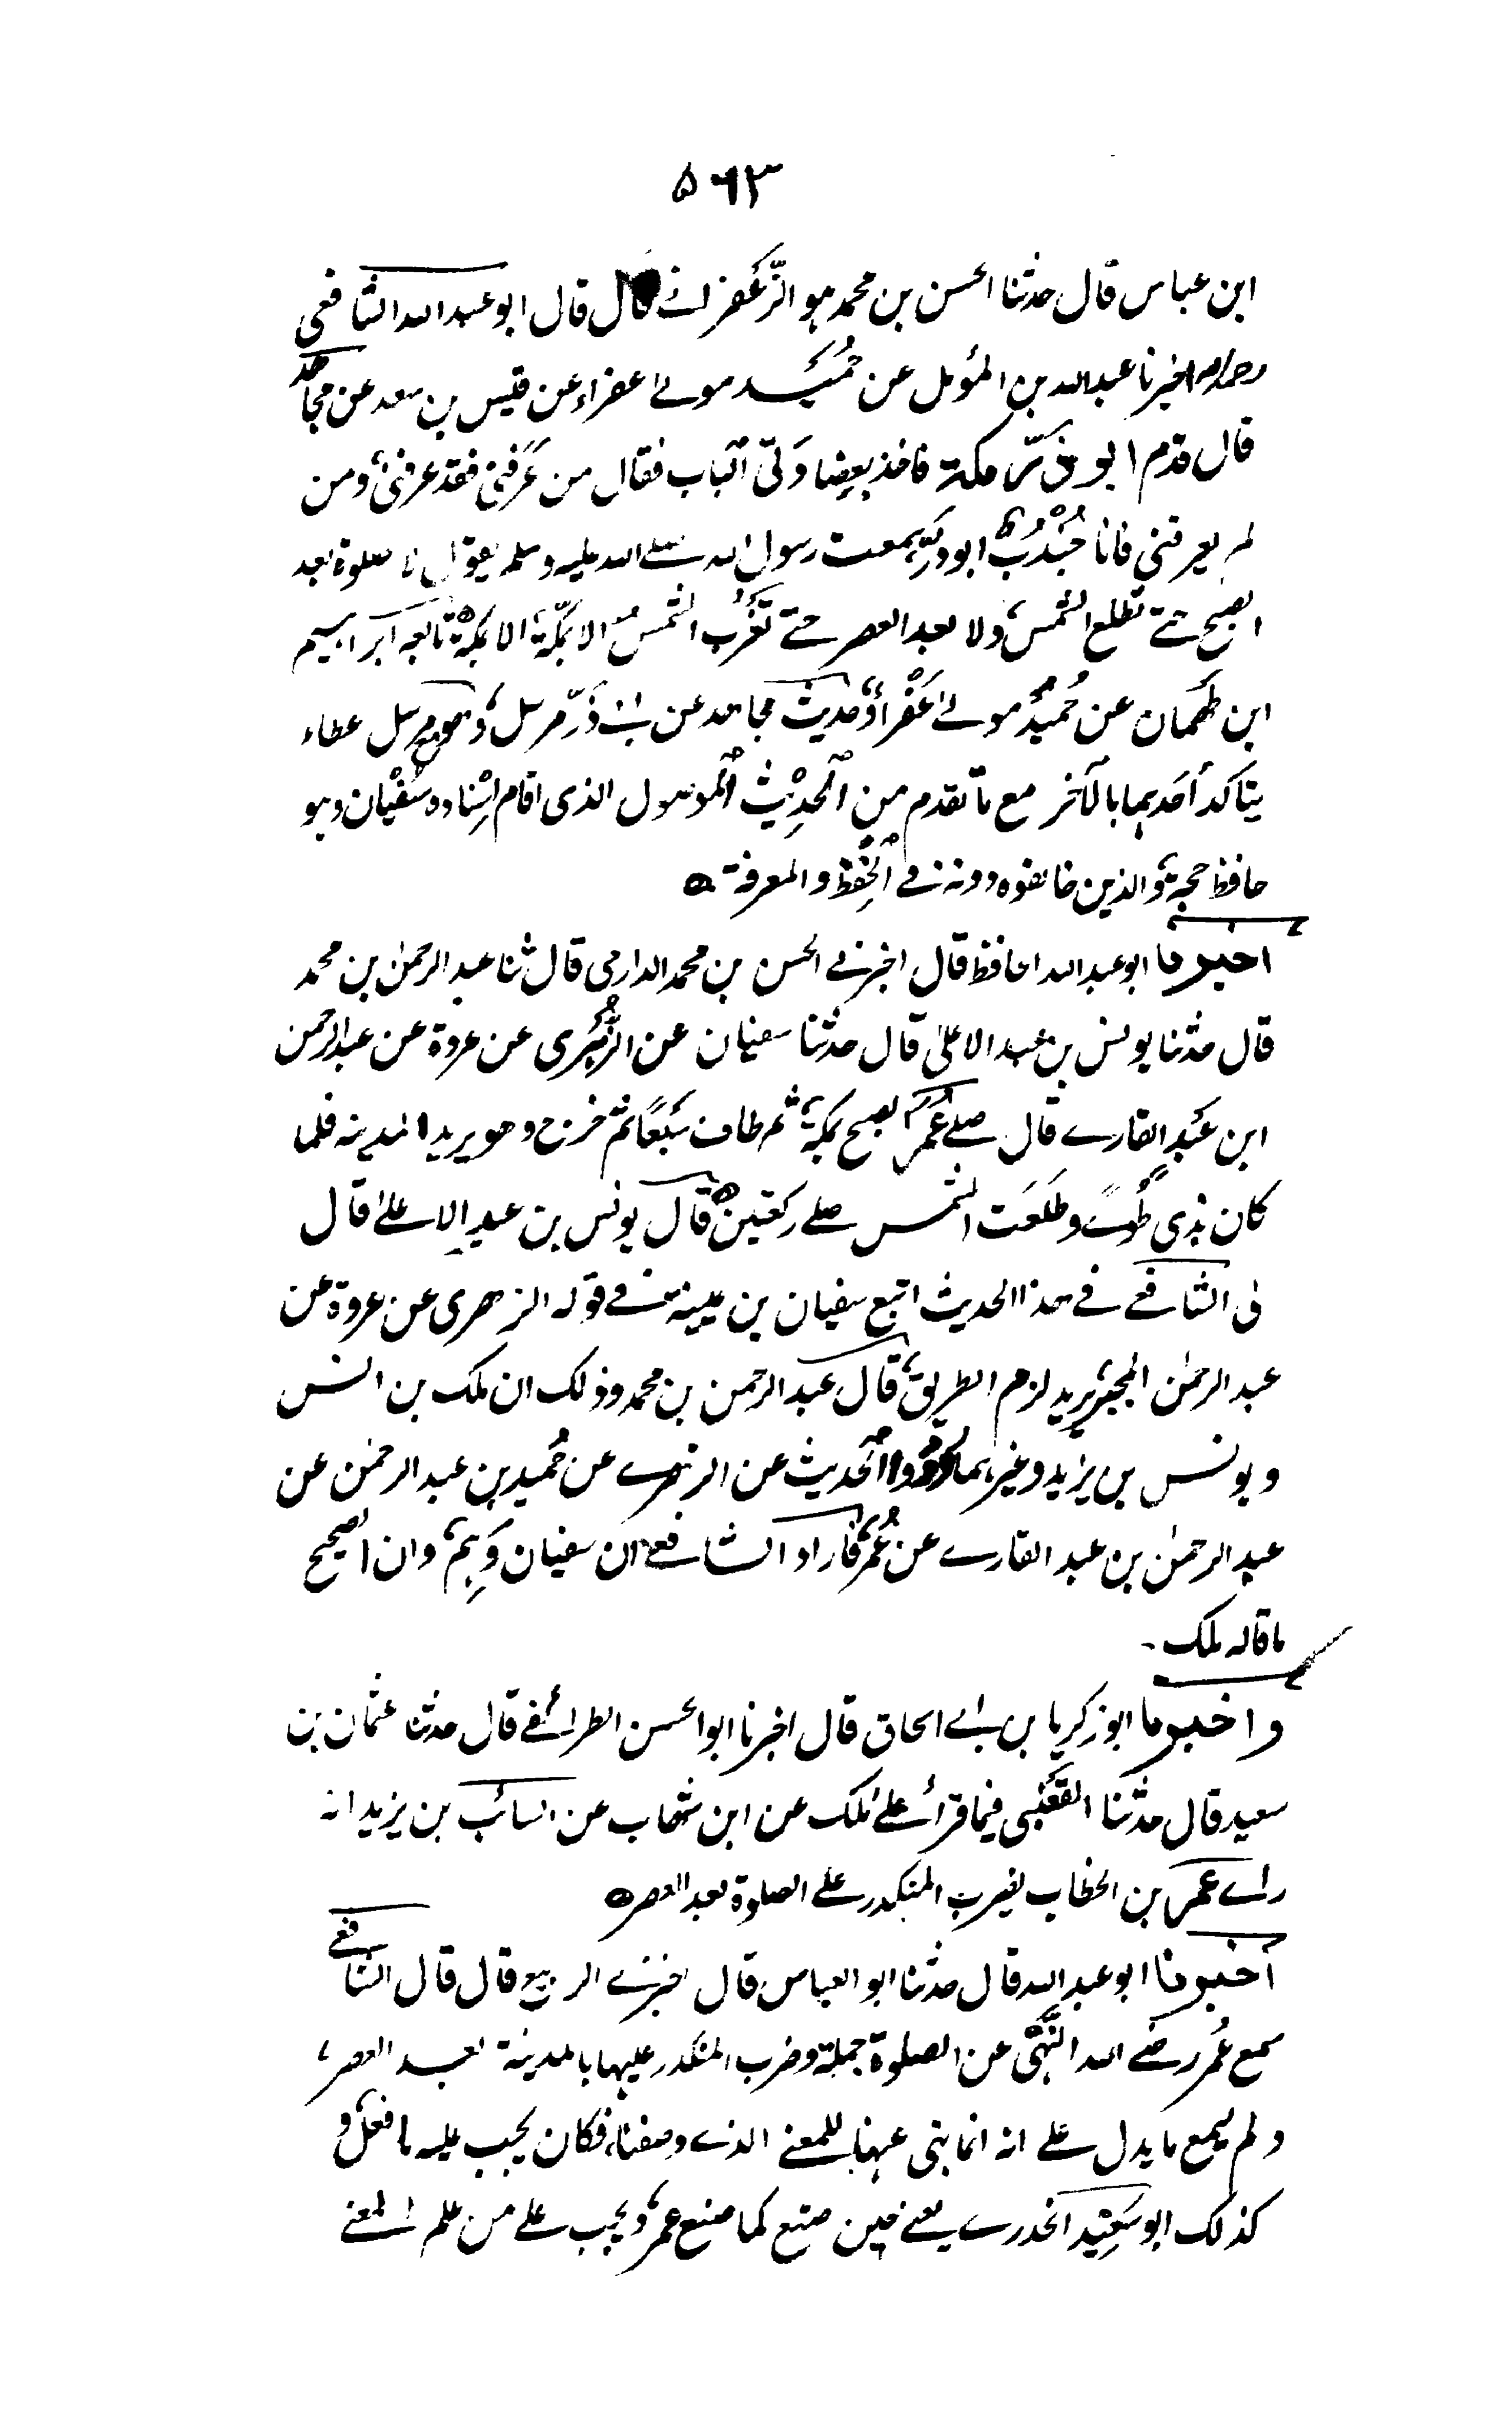 ٥٦٣
ابن عباس قال حدثنا الحسن بن محمد هو الزَّعْفَراني قال قال ابو عبد الله الشافعي
رحمه الله اخبرنا عبد الله بن المؤمل عن حُمَيد مولى عفراء عن قيس بن سعد عن مجاهد
قال قدم ابو ذرّ مكة فاخذ بعضادَتي الباب فقال من عَرَفني فقد عرفني ومن
لم يعرفني فانا جُنْدُبٌ ابوذرّ سمعت رسول الله صلى الله عليه وسلم يقول لا صلوة بعد
الصبح حتى تطلع الشمس ولا بعد العصر حتى تَغْرُب الشمس الا بمكّة الا بمكة تابعه ابراهيم
ابن طَهمان عن حُميدٍ مولى عَفْراءَ وحديث مجاهد عن ابي ذَرّ مرسل وهو مع مرسل عطاء
يتاكد أحدهما بالآخر مع ما تقدم من الحَدِيْث الموصول الذى اقام اِسْناده سُفْيان وهو
حافظ حجة والذين خالفوه دونه في الحِفْظ والمعرفة ه
اخبرنا ابو عبد الله الحافظ قال اخبرني الحسن بن محمد الدارمى قال ثنا عبد الرحمٰن بن محمد
قال حدثنا يونس بن عبد الاعلىٰ قال حدثنا سفيان عن الزُّهْرى عن عروة عن عبد الرحمن
ابن عَبْدٍ القارى قال صلى عُمَر الصبح بمكة ثم طاف سَبْعًا ثم خرج وهو يريد المدينه فلما
كان بذى طُوًى وطَلَعَت الشمس صلى ركعتين ه قال يونس بن عبد الاعلى قال
لى الشافعى في هذا الحديث اتبع سفيان بن عيينة في قوله الزهرى عن عروة عن
عبد الرحمٰن المجرة يريد لزم الطريق قال عبد الرحمن بن محمد وذلك ان ملك بن انس
ويونس بن يزيد وغيرهما رووا الحَديث عن الزهرى عن حُميد بن عبد الرحمٰن عن
عبد الرحمٰن بن عبد القارى عن عُمَر فاراد الشافعى ان سفيان وَهِم وان الصحيح
ما قاله ملك ۔
واخبرنا ابو زكريا بن ابي اسحاق قال اخبرنا ابو الحسن الطرائفى قال حدثنا عثمان بن
سعيد قال حدثنا القَعْنَبى فيما قرأ على ملك عن ابن شهاب عن السائب بن يزيد انه
راى عمر بن الخطاب يضرب المنكدر على الصلوة بعد العصر ه
أخبرنا ابو عبد الله قال حدثنا ابو العباس قال اخبرني الربيع قال قال الشافعى
سمع عُمر رضى الله النَّهْى عن الصلوة جملة وضرب المنكدر عليها بالمدينة بعد العصر
ولم يسمع ما يدل على انه انما نهى عنها للمعنى الذى وصفنا فكان يجب عليه ما فعل و
كذلك ابو سَعِيْد الخدرى يعنى حين صنع كما صنع عمر ويجب على من علم المعنى